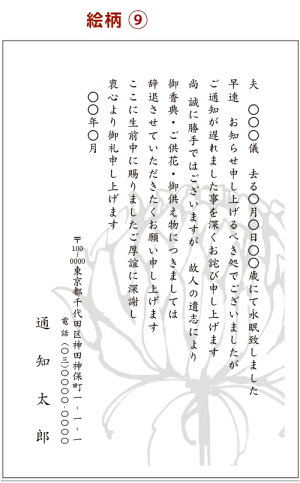 絵柄⑨
夫　〇〇〇儀　去る〇月〇日〇〇歳にて永眠致しました
早速　お知らせ申し上げるべき処でございましたが
ご通知が遅れました事を深くお詫び申し上げます
尚　誠に勝手ではございますが　故人の遺志により
御香典・ご供花・御供え物につきましては
辞退させていただきたくお願い申し上げます
ここに生前中に賜りましたご厚誼に深謝し
衷心より御礼申し上げます
〇〇年〇月
〒100-0000東京都千代田区神田神保町一-一-一
電話（〇三）〇〇〇〇-〇〇〇〇
通知太郎